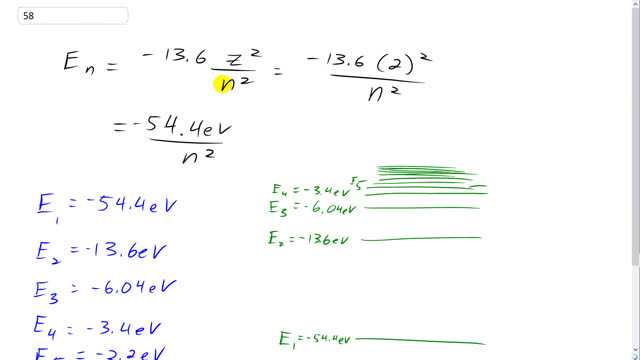 58
E_n = -13.6 z²/n² = -13.6 (2)²/n²
= -54.4eV/n²
E_1 = -54.4eV
E_2 = -13.6eV
E_3 = -6.04eV
E_4 = -3.4eV
E_5 = -2.2eV
E_5
E_4 = -3.4eV
E_3 = -6.04eV
E_2 = -13.6eV
E_1 = -54.4eV